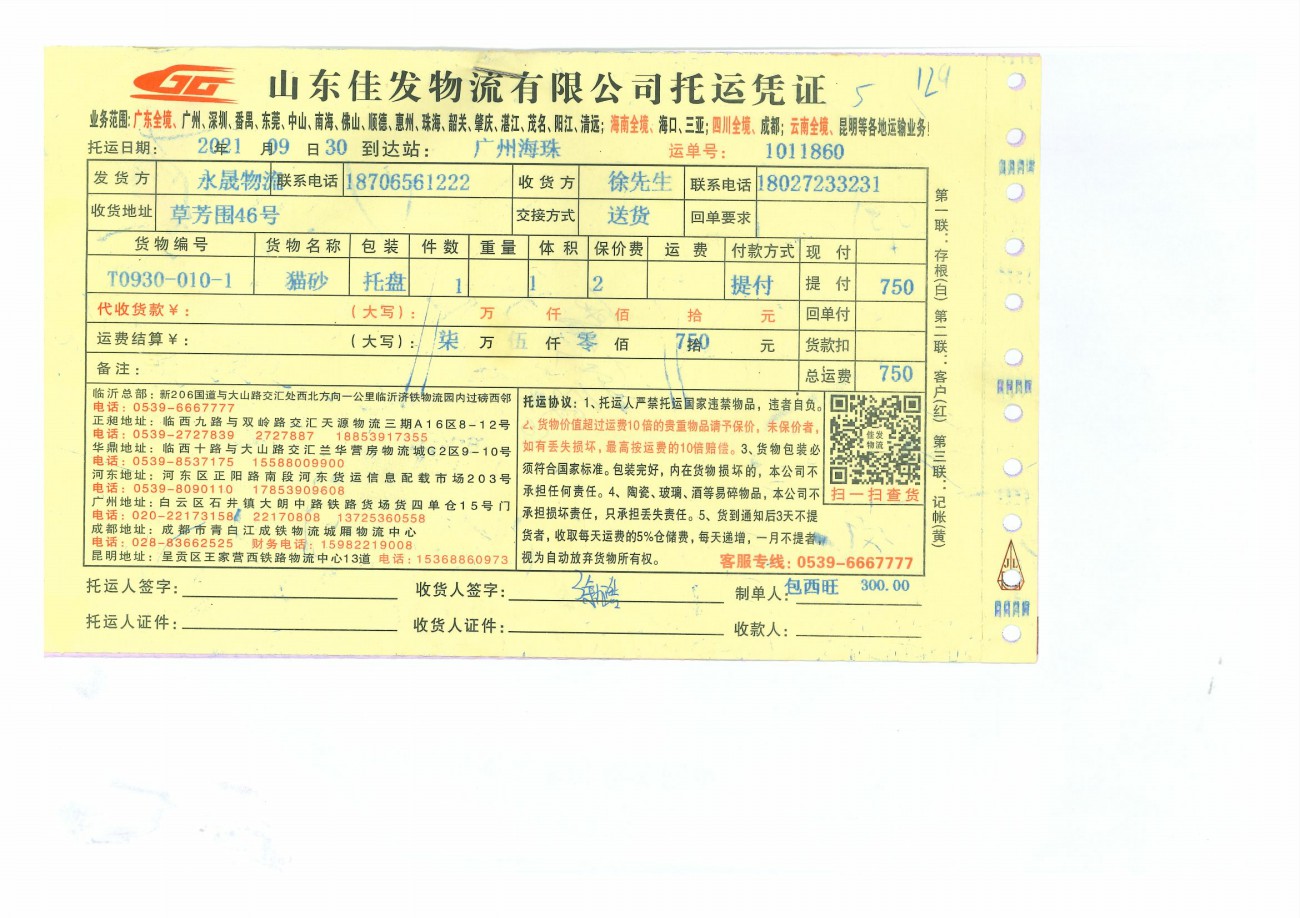 山东佳发物流有限公司托运凭证 5 129
业务范围:广东全境、广州、深圳、番禺、东莞、中山、南海、佛山、顺德、惠州、珠海、韶关、肇庆、湛江、茂名、阳江、清远；海南全境、海口、三亚；四川全境、成都；云南全境、昆明等各地运输业务！
托运日期： 2021 年 月 09 日 30 到达站： 广州海珠 运单号： 1011860
发货方 永晟物流 联系电话 18706561222 收货方 徐先生 联系电话 18027233231
收货地址 草芳围46号 交接方式 送货 回单要求
货物编号 货物名称 包装 件数 重量 体积 保价费 运费 付款方式 现付
T0930-010-1 猫砂 托盘 1 1 2 提付 提付 750
代收货款￥： （大写）： 万 仟 佰 拾 元 回单付
运费结算￥： （大写）： 柒 万 伍 仟 零 佰 750 拾 元 货款扣
备注： 总运费 750
临沂总部：新206国道与大山路交汇处西北方向一公里临沂济铁物流园内过磅西邻
电话：0539-6667777
正昶地址：临西九路与双岭路交汇天源物流三期A16区8-12号
电话：0539-2727839 2727887 18853917355
华鼎地址：临西十路与大山路交汇兰华营房物流城C2区9-10号
电话：0539-8537175 15588009900
河东地址：河东区正阳路南段河东货运信息配载市场203号
电话：0539-8090110 17853909608
广州地址：白云区石井镇大朗中路铁路货场货四单仓15号门
电话：020-22173158 22170808 13725360558
成都地址：成都市青白江成铁物流城厢物流中心
电话：028-83662525 财务电话：15982219008
昆明地址：呈贡区王家营西铁路物流中心13道 电话：15368860973
托运协议：1、托运人严禁托运国家违禁物品，违者自负。
2、货物价值超过运费10倍的贵重物品请予保价，未保价者，
如有丢失损坏，最高按运费的10倍赔偿。3、货物包装必
须符合国家标准。包装完好，内在货物损坏的，本公司不
承担任何责任。4、陶瓷、玻璃、酒等易碎物品，本公司不
承担损坏责任，只承担丢失责任。5、货到通知后3天不提
货者，收取每天运费的5%仓储费，每天递增，一月不提者，
视为自动放弃货物所有权。
佳发
物流
扫一扫查货
客服专线：0539-6667777
托运人签字： 收货人签字： 制单人： 包西旺 300.00
托运人证件： 收货人证件： 收款人：
第一联：存根(白) 第二联：客户(红) 第三联：记帐(黄)